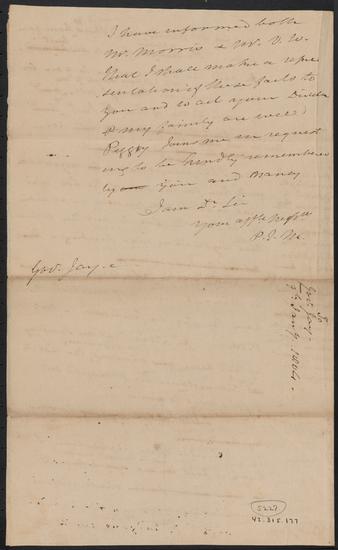 I have informed both
Mr. Morris & Mr. V. W.
that I shall make a repre
sentation of these facts to
you and wait your Decision
& my family are well
Peggy Joins me in request
ing to be kindly remembered
by you and Nancy
I am Dr Sir
Your affte
P. J. M.
Govr. Jay.
To
Govr Jay.
5th Jany. 1804.
5227
42.315.177